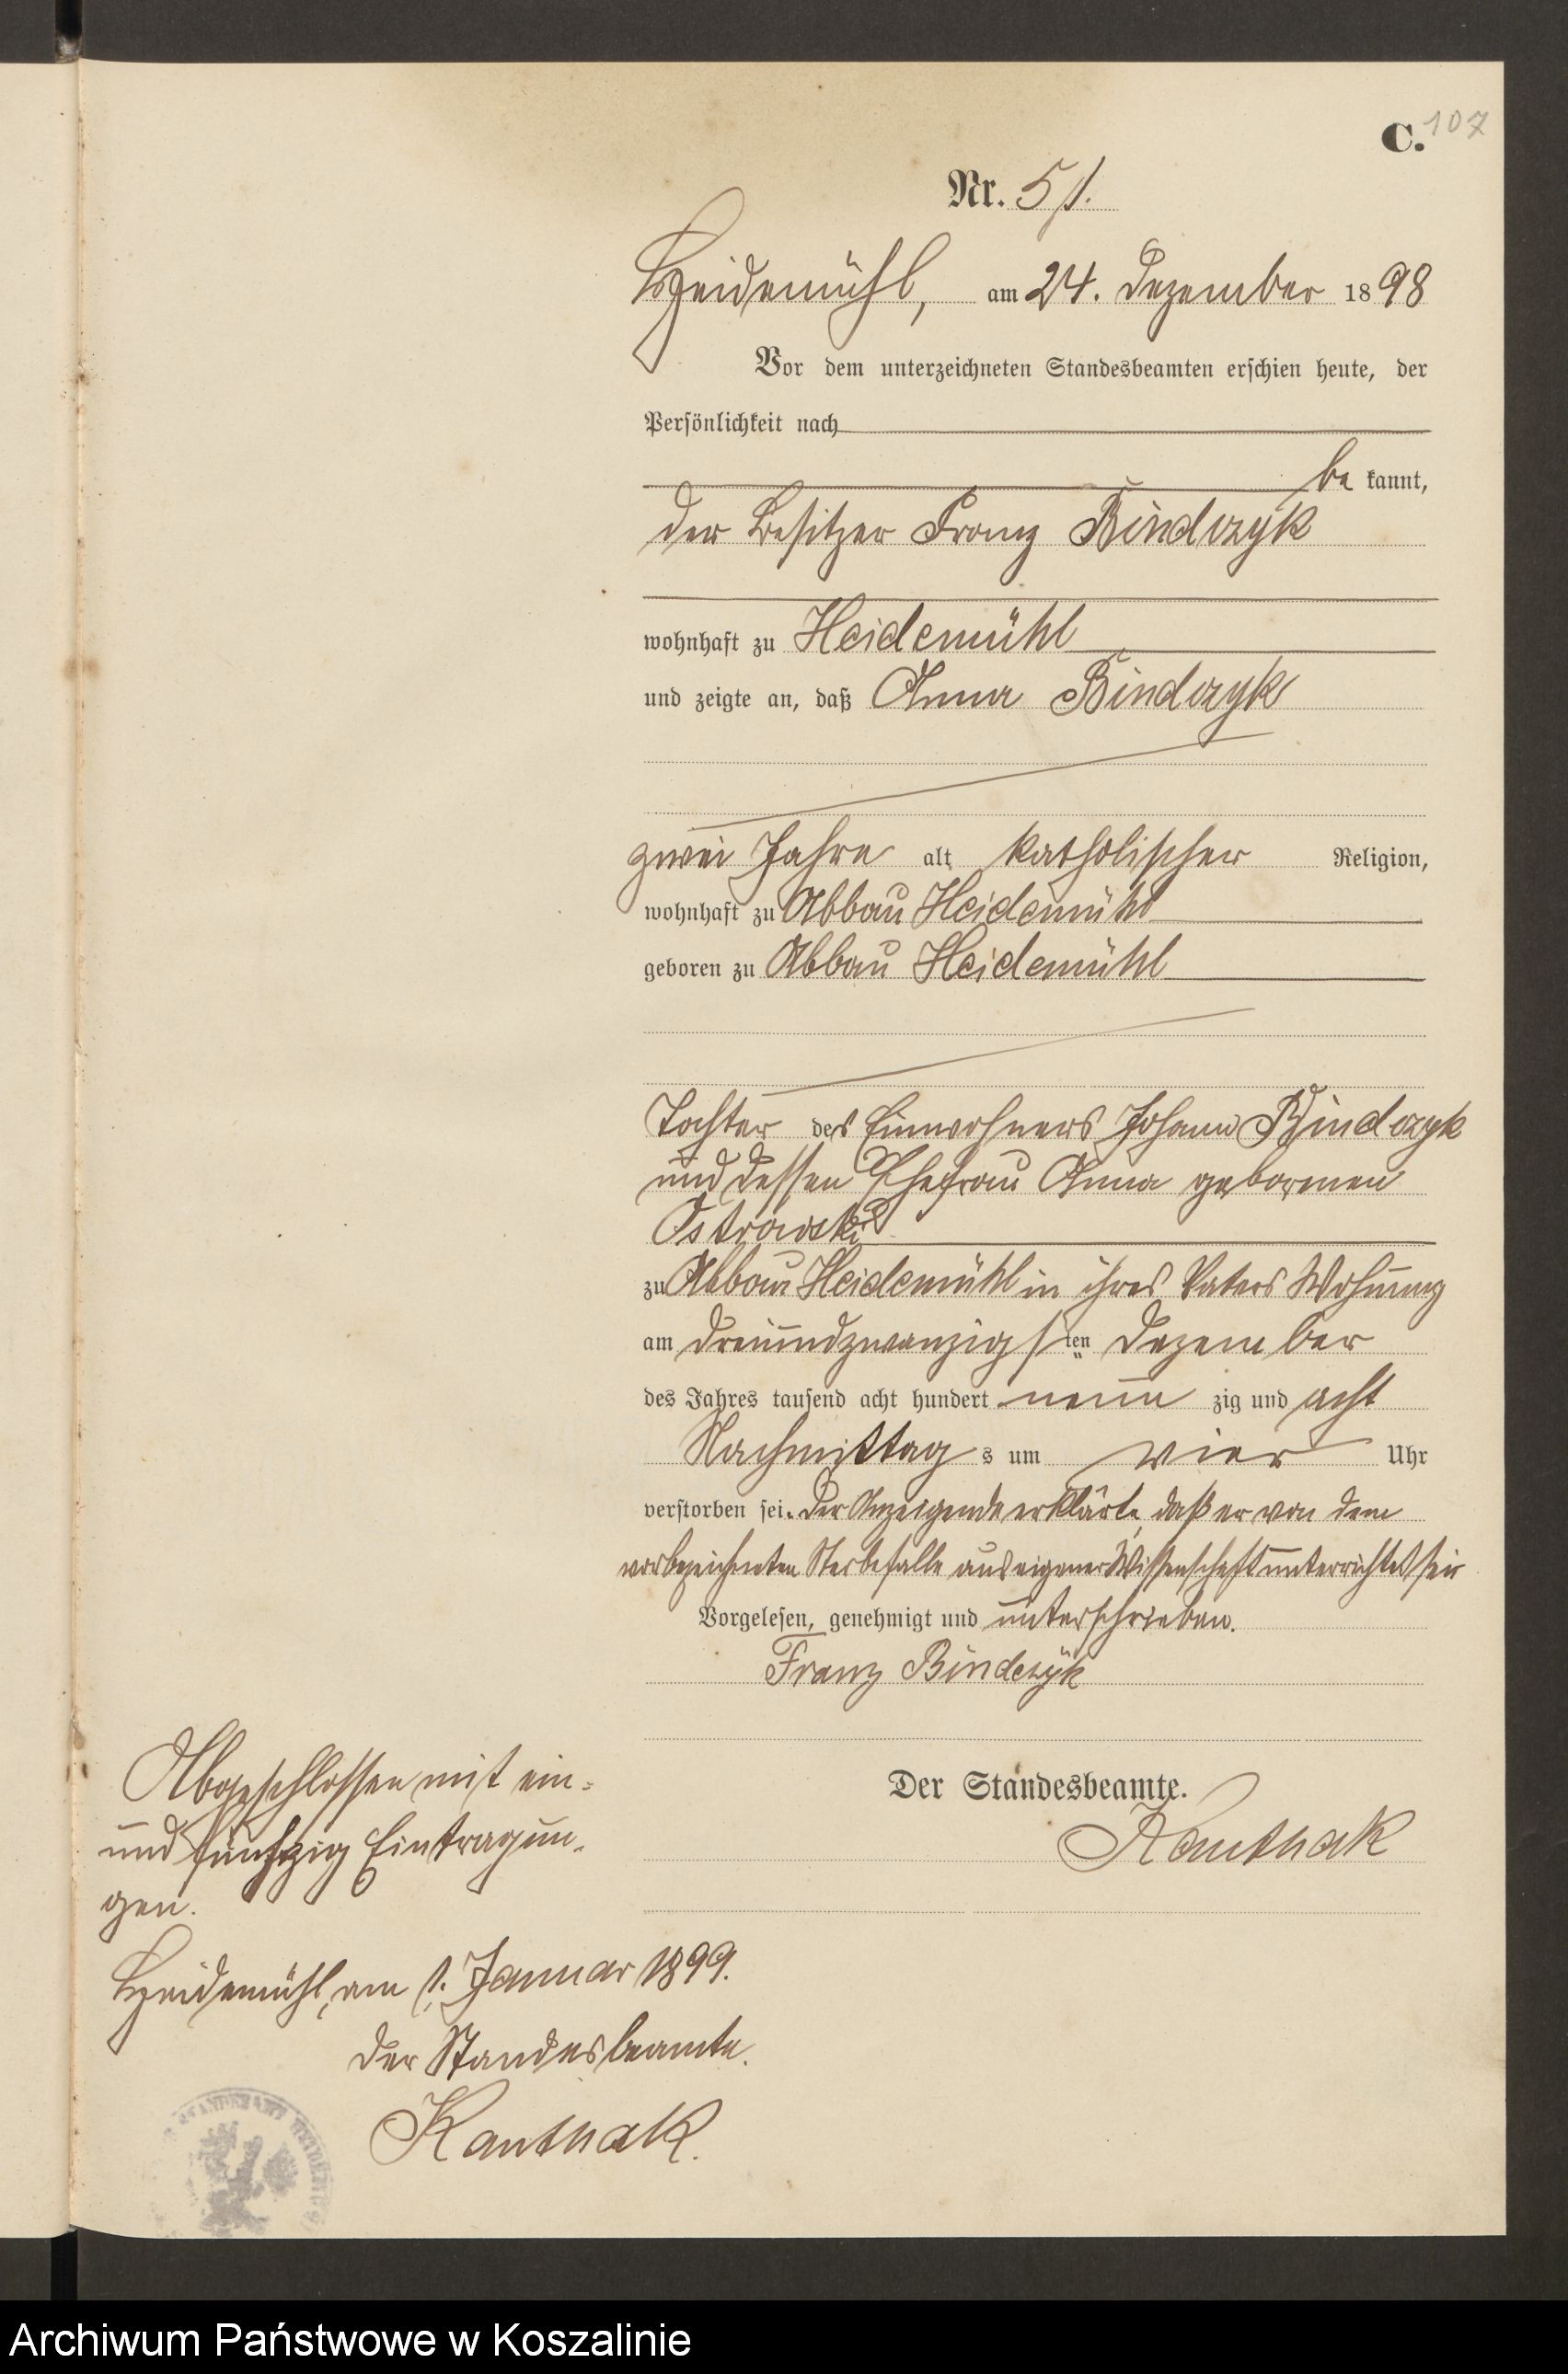 C. 107
Nr. 51.
Heidemühl, am 24. Dezember 1898
Vor dem unterzeichneten Standesbeamten erschien heute, der
Persönlichkeit nach
be kannt,
der Besitzer Franz Bindczyk
wohnhaft zu Heidemühl
und zeigte an, daß Anna Bindczyk
zwei Jahre alt, katholischer Religion,
wohnhaft zu Abbau Heidemühl
geboren zu Abbau Heidemühl
Tochter des Einwohners Johann Bindczyk
und dessen Ehefrau Anna geborenen
Ostrowski
zu Abbau Heidemühl in ihres Vaters Wohnung
am dreiundzwanzigsten Dezember
des Jahres tausend acht hundert neun zig und acht
Nachmittag s um vier Uhr
verstorben sei. Der Anzeigende erklärte, daß er von dem
vorbezeichneten Sterbefalle aus eigener Wissenschaft unterrichtet sei.
Vorgelesen, genehmigt und unterschrieben.
Franz Bindczÿk
Der Standesbeamte.
Kanthak
Abgeschlossen mit ein-
und fünfzig Eintragun-
gen.
Heidemühl, am 1. Januar 1899.
Der Standesbeamte.
Kanthak.
Archiwum Państwowe w Koszalinie